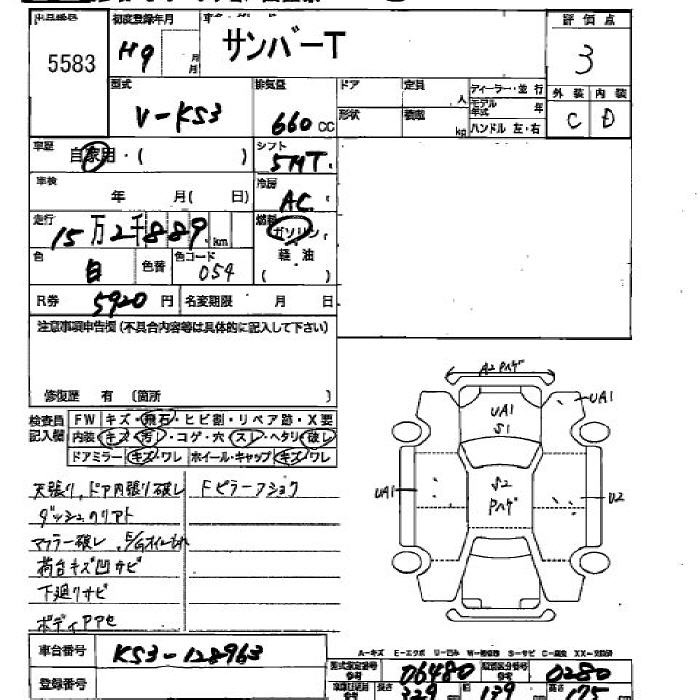 5583
初度登録年月
H9 月
月
サンバーT
評価点
3
型式
V-KS3
排気量
660 CC
ドア
定員
人
形状
積載
kg
ディーラー・並行
モデル年式 年
ハンドル 左・右
外装 内装
C D
車歴
自家用・( )
シフト
5MT
車検
年 月( 日)
冷房
AC
走行
15万2千889 km
燃料
ガソリン
軽油
( )
色
白
色替
色コード
054
R券 5920 円
名変期限 月 日
注意事項申告欄(不具合内容等は具体的に記入して下さい)
修復歴 有 (箇所 )
検査員記入欄
FW キズ・飛石・ヒビ割・リペア跡・X要
内装 キズ・汚レ・コゲ・穴・スレ・ヘタリ・破レ
ドアミラー キズ・ワレ ホイール・キャップ キズ・ワレ
天張り、ドア内張り破レ
Fピラーフショク
ダッシュクリアト
マフラー破レ
荷台キズ凹サビ
下廻りサビ
A2 Pハゲ
UA1
S1
UA1
UA1
S2
Pハゲ
U2
車台番号 KS3-128963
登録番号
A-キズ E-エクボ U-凹み W-補修跡 S-サビ C-腐食 XX-交換済
型式指定番号 06480
類別区分番号 0280
長さ 329
幅 139
高さ 175